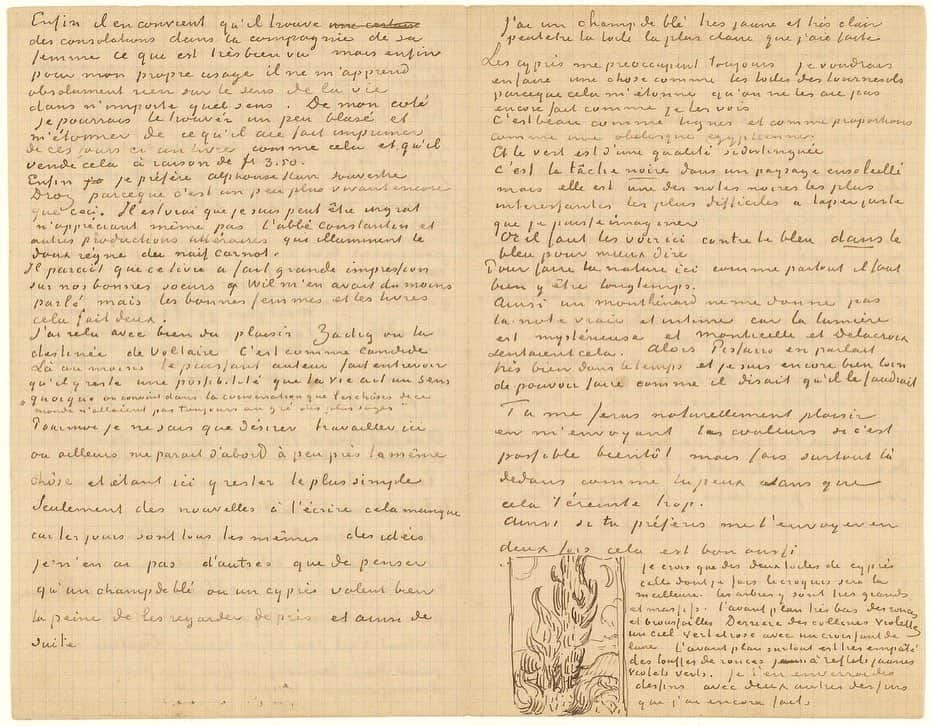 Enfin il en convient qu'il trouve une certaine
des consolations dans la compagnie de sa
femme ce que est très bien vu mais enfin
pour mon propre usage il ne m'apprend
absolument rien sur le sens de la vie
dans n'importe quel sens. De mon coté
je pourrais le trouver un peu blasé et
m'étonner de ce qu'il aie fait imprimer
de ces jours ci un livre comme cela et qu'il
vende cela à raison de fr 3.50.
Enfin je préfère alphonse Karr souvestre
Droz parceque c'est un peu plus vivant encore
que ceci. Il est vrai que je suis peut être ingrat
n'appréciant même pas l'abbé constantin et
autres productions littéraires que illuminent le
doux règne du naif Carnot.
Il parait que ce livre a fait grande impression
sur nos bonnes soeurs Wil m'en avait du moins
parlé mais les bonnes femmes et les livres
cela fait deux.
J'ai relu avec bien du plaisir Zadig ou la
destinée de Voltaire C'est comme Candide
Là au moins le puissant auteur fait entrevoir
qu'il y reste une possibilité que la vie ait un sens
"quoique on convint dans la conversation que les choses de ce
monde n'allaient pas toujours au gré des plus sages"
Pour moi je ne sais que désirer travailler ici
ou ailleurs me parait d'abord à peu près la même
chose et étant ici y rester le plus simple
Seulement des nouvelles à t'écrire cela manque
car les jours sont tous les mêmes des idées
je n'en ai pas d'autres que de penser
qu'un champ de blé ou un cyprès valent bien
la peine de les regarder de près et ainsi de
suite
J'ai un champ de blé très jaune et très clair
peutetre la toile la plus claire que j'aie faite
Les cyprès me preoccupent toujours je voudrais
en faire une chose comme les toiles des tournesols
parceque cela m'étonne qu'on ne les aie pas
encore fait comme je les vois
C'est beau comme lignes et comme proportions
comme une obelisque egyptienne
Et le vert est d'une qualité si distinguée
C'est la tâche noire dans un paysage ensoleillé
mais elle est une des notes noires les plus
interessantes les plus difficiles à taper juste
que je puisse imaginer
Or il faut les voir ici contre le bleu dans le
bleu pour mieux dire
Pour faire la nature ici comme partout il faut
bien y être longtemps.
Ainsi un monthénard ne me donne pas
la note vraie et intime car la lumière
est mystérieuse et monticelli et Delacroix
sentaient cela. Alors Pissarro en parlait
très bien dans le temps et je suis encore bien loin
de pouvoir faire comme il disait qu'il le faudrait
Tu me feras naturellement plaisir
en m'envoyant les couleurs si c'est
possible bientôt mais fais surtout là
dedans comme tu peux sans que
cela t'éreinte trop.
ainsi si tu préfères me l'envoyer en
deux fois cela est bon aussi
je crois que des deux toiles de cyprès
celle dont je fais le croquis sera la
meilleure. les arbres y sont très grands
et massifs. l'avant plan très bas des ronces
et broussailles Derrière des collines violettes
un ciel vert et rose avec un croissant de
lune. L'avant plan surtout est très empâté
des touffes de ronces à reflets jaunes
violets verts. je t'en enverrai des
dessins avec deux autres dessins
que j'ai encore faits